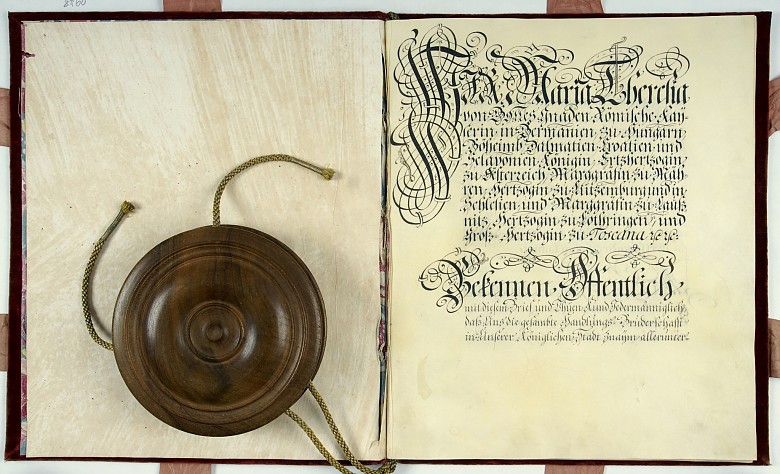 8260
WIR Maria Theresia
von Gottes Gnaden Römische Kaÿ-
serin in Germanien zu Hungarn
Böheimb Dalmatien Croatien und
Sclavonien Königin Ertzhertzogin
zu Österreich Marggräfin zu Mäh-
ren Hertzogin zu Lützemburg und in
Schlesien und Marggräfin zu Lauß-
nitz Hertzogin zu Lothringen und
Groß-Hertzogin zu Toscana
Bekennen Öffentlich
mit diesem Brief und Thuen Kund Jedermänniglich
daß Uns die gesambte Handlungs-Bruderschafft
in Unserer Königlichen Stadt Znaym allerunter-